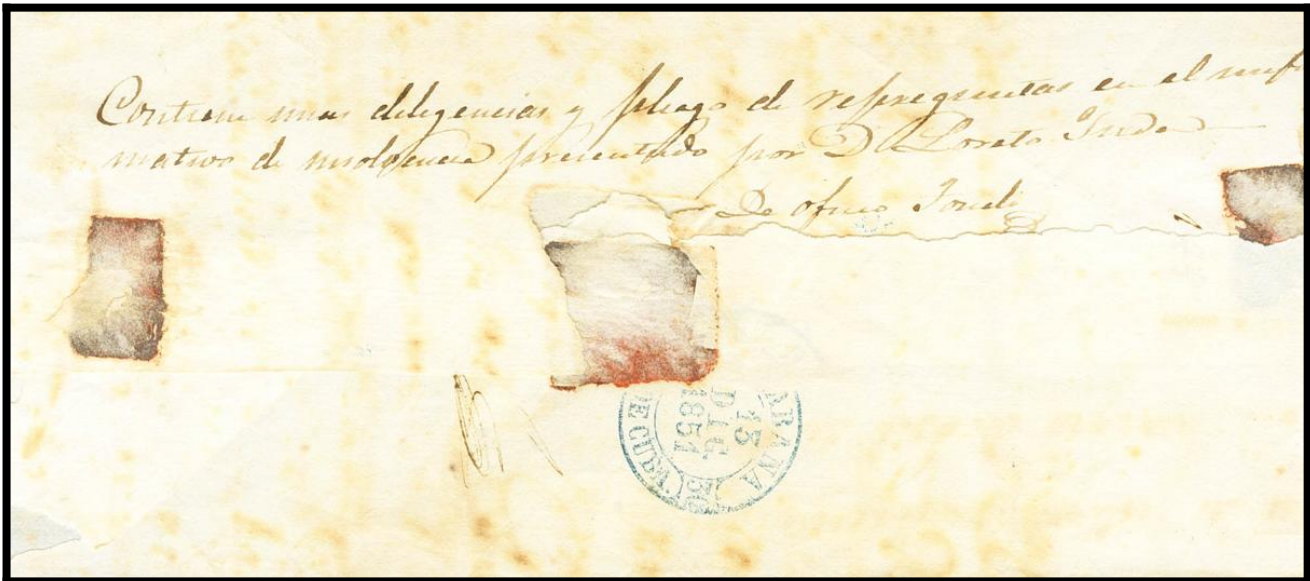 Contiene unas diligencias y pliego de repreguntas en el
motivo de insolvencia presentado por D Loreto
De oficio
ABANA
15
DIC
1851
DE CUBA